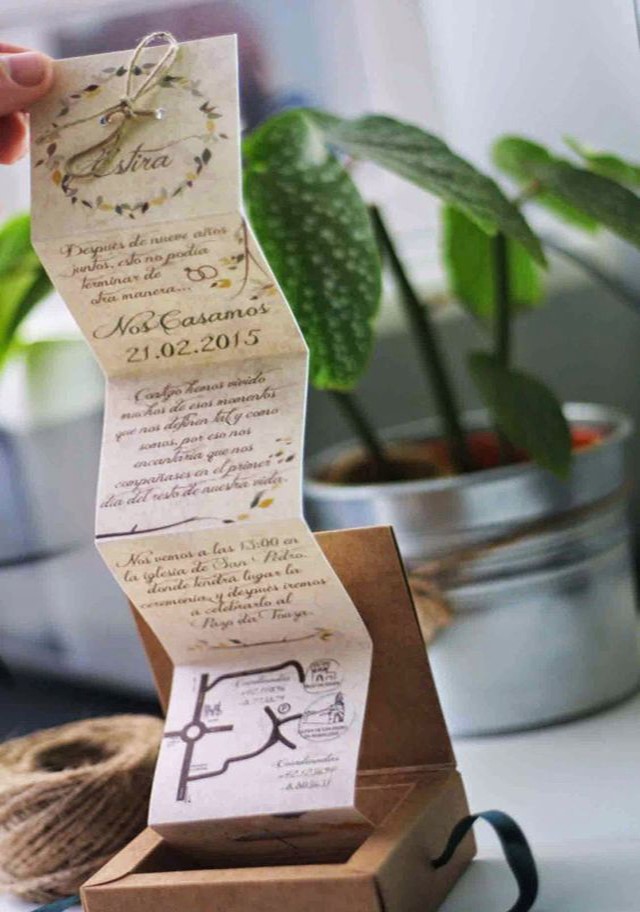 Estira
Después de nueve años
juntos, esto no podía
terminar de
otra manera...
Nos Casamos
21.02.2015
Contigo hemos vivido
muchos de esos momentos
que nos definen tal y como
somos, por eso nos
encantaría que nos
acompañases en el primer
día del resto de nuestra vida.
Nos vemos a las 13:00 en
la iglesia de San Pedro
donde tendrá lugar la
ceremonia, y después iremos
a celebrarlo al
Pazo da Touza.
Coordenadas
Coordenadas